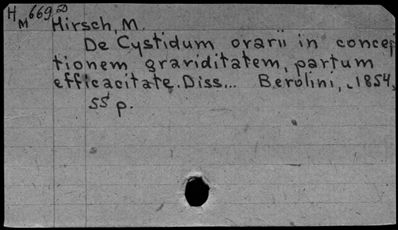 H 669 D
M
Hirsch, M.
De Cystidum ovarii in concep
tionem graviditatem, partum
efficacitate. Diss... Berolini, 1854,
55 p.